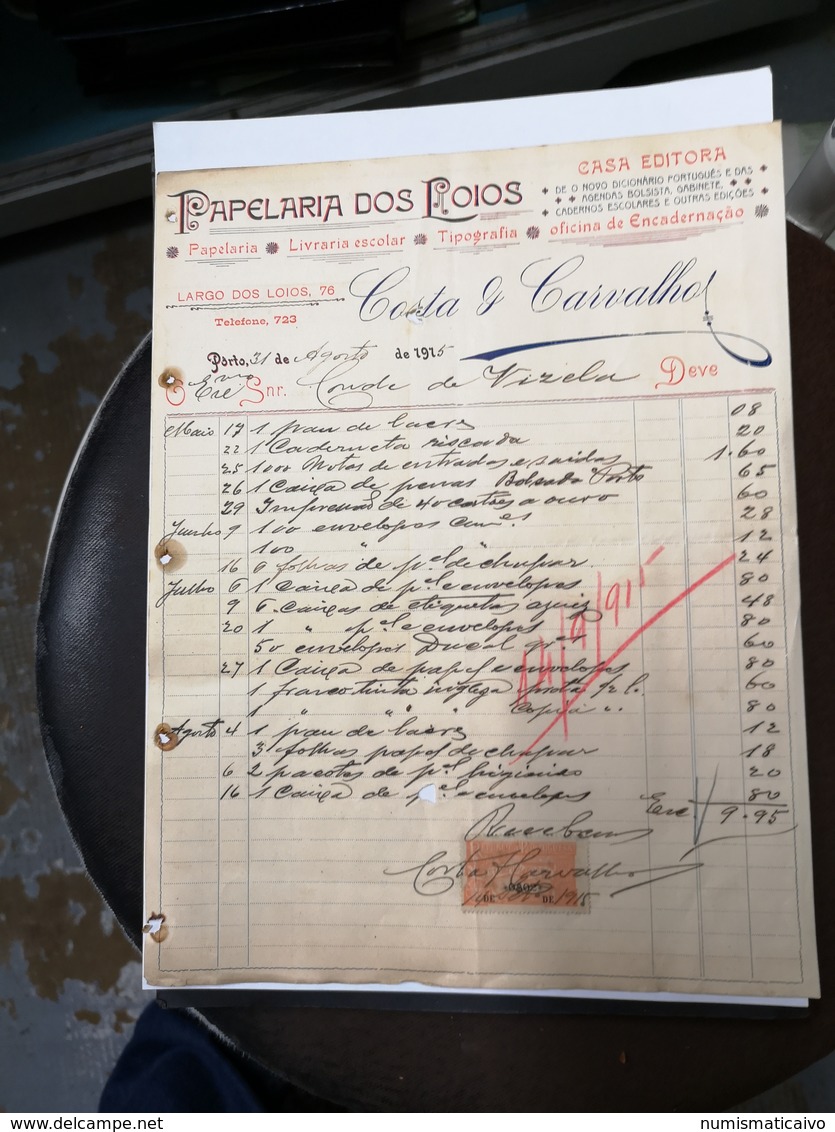 PAPELARIA DOS LOIOS
CASA EDITORA
DE O NOVO DICIONÁRIO PORTUGUÊS E DAS
AGENDAS BOLSISTA, GABINETE,
CADERNOS ESCOLARES E OUTRAS EDIÇÕES
Papelaria Livraria escolar Tipografia oficina de Encadernação
LARGO DOS LOIOS, 76
Telefone, 723
Costa & Carvalho
Pôrto, 31 de Agosto de 1915
O Exmo Snr. Conde de Vizela Deve
Maio 17 1 pau de lacre 08
22 1 Caderneta riscada 20
25 1000 Notas de entradas e saidas 1.60
26 1 Caixa de penas Porto 65
29 Impressão de 40 cartões a ouro 60
Junho 9 100 envelopes 28
100 " " 12
16 6 folhas de pel de chupar 24
Julho 6 1 Caixa de pel e envelopes 80
9 6 Caixas de etiquetas 48
20 1 " pel e envelopes 80
50 envelopes Ducal 60
27 1 Caixa de papel e envelopes 80
1 frasco tinta ingleza preta 60
1 " " " Copia " 80
Agosto 4 1 pau de lacre 12
3 folhas papel de chupar 18
6 2 pacotes de pel higienico 20
16 1 Caixa de pel e envelopes 80
Esc. 9.95
Recebemos
Costa & Carvalho
DE DE 1915
www.numismaticaivo